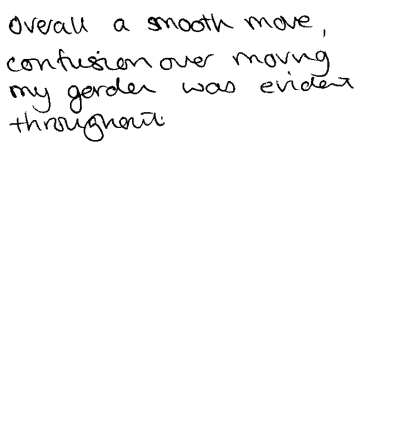 Overall a smooth move,
confusion over moving
my garden was evident
throughout.